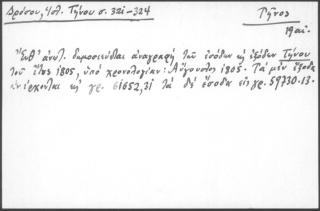 Δρόσου, Ἱστ. Τήνου σ. 321-324
Τῆνος
19 αἰ.
Ἔνθ' ἀνωτ. δημοσιεύεται ἀναγραφὴ τῶν ἐσόδων κ ἐξόδων Τήνου
τοῦ ἔτους 1805, ὑπὸ χρονολογίαν: Αὔγουστος 1805. Τὰ μὲν ἔξοδα
ἀνέρχονται εἰς γρ. 61652,31 τὰ δὲ ἔσοδα εἰς γρ. 59730.13.